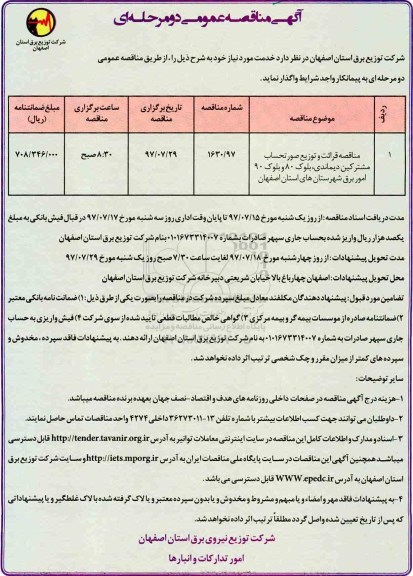 آگهی مناقصه عمومی دو مرحله‌ای
شرکت توزیع برق استان
اصفهان
شرکت توزیع برق استان اصفهان در نظر دارد خدمت مورد نیاز خود به شرح ذیل را، از طریق مناقصه عمومی
دو مرحله‌ای به پیمانکار واجد شرایط واگذار نماید.
ردیف موضوع مناقصه شماره مناقصه تاریخ برگزاری مناقصه ساعت برگزاری مناقصه مبلغ ضمانتنامه (ریال)
۱ مناقصه قرائت و توزیع صورتحساب مشترکین دیماندی، بلوک ۸۰ و بلوک ۹۰ امور برق شهرستان های استان اصفهان ۱۶۳۰/۹۷ ۹۷/۰۷/۲۹ ۸:۳۰ صبح ۷۰۸/۳۴۶/۰۰۰
مدت دریافت اسناد مناقصه: از روز یک شنبه مورخ ۹۷/۰۷/۱۵ تا پایان وقت اداری روز سه شنبه مورخ ۹۷/۰۷/۱۷ در قبال فیش بانکی به مبلغ
یکصد هزار ریال واریز شده بحساب جاری سپهر صادرات بشماره ۰۱۰۱۶۷۳۳۱۴۰۰۷ بنام شرکت توزیع برق استان اصفهان
مدت تحویل پیشنهادات: از روز چهارشنبه مورخ ۹۷/۰۷/۱۸ لغایت ساعت ۷/۳۰ صبح روز یک شنبه مورخ ۹۷/۰۷/۲۹
محل تحویل پیشنهادات: اصفهان چهارباغ بالا خیابان شریعتی دبیرخانه شرکت توزیع برق استان اصفهان
تضامین مورد قبول: پیشنهاد دهندگان مکلفند معادل مبلغ سپرده شرکت در مناقصه را بصورت یکی از طرق ذیل: ۱) ضمانت نامه بانکی معتبر
۲) ضمانتنامه صادره از موسسات بیمه گر و بیمه مرکزی ۳) گواهی خالص مطالبات قطعی تایید شده از سوی شرکت ۴) فیش واریزی به حساب
جاری سپهر صادرات به شماره ۰۱۰۱۶۷۳۳۱۴۰۰۷ به نام شرکت توزیع برق استان اصفهان ارائه دهند. به پیشنهادات فاقد سپرده، مخدوش و
سپرده های کمتر از میزان مقرر و چک شخصی ترتیب اثر داده نخواهد شد.
سایر توضیحات:
۱-هزینه درج آگهی مناقصه در صفحات داخلی روزنامه های هدف و اقتصاد-نصف جهان بعهده برنده مناقصه میباشد.
۲-داوطلبان می توانند جهت کسب اطلاعات بیشتر با شماره تلفن ۱۳-۳۶۲۷۳۰۱۱ داخلی ۴۲۷۴ واحد مناقصات تماس حاصل نمایند.
۳-اسناد و مدارک و اطلاعات کامل این مناقصه در سایت اینترنتی معاملات توانیر به آدرس http://tender.tavanir.org.ir قابل دسترسی
میباشد همچنین آگهی این مناقصات در سایت پایگاه ملی مناقصات ایران به آدرس http://iets.mporg.ir و سایت شرکت توزیع برق
استان اصفهان به آدرس WWW.epedc.ir قابل دسترسی می باشد.
۴-به پیشنهادات فاقد مهر و امضاء و یا مبهم و مشروط و مخدوش و یا بدون سپرده معتبر و یا لاک گرفته شده با لاک غلطگیر و یا پیشنهاداتی
که پس از تاریخ تعیین شده واصل گردد مطلقاً ترتیب اثر داده نخواهد شد.
شرکت توزیع نیروی برق استان اصفهان
امور تدارکات و انبارها